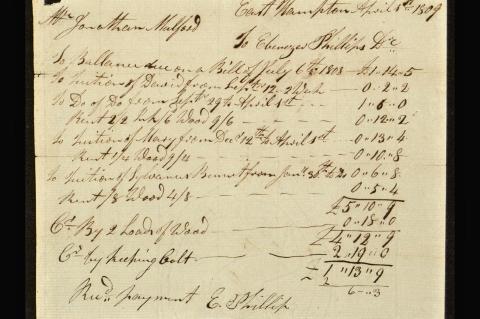 East Hampton April 1st 1809
Mr Jonathan Mulford
To Ebenezer Phillips Dr
To Ballance due on a Bill of July 6th 1808 £1"14"5
To Tuition of David from Septr 12 2 Weeks 0"2"2
To Do of Do from Septr 29th to April 1st 1"6"0
Rent 2/6 Wood 9/6 0"12"2
To Tuition of Mary from Decr 12th to April 1st 0"13"4
Rent Wood 0"10"8
To Tuition of Sylvanus Bennet from Janr 0"6"8
Rent /8 Wood 4/8 0"5"4
£5"10"9
Cr By 2 Loads of Wood 0"18"0
£4"12"9
Cr by keeping Colt 2"19"0
£1"13"9
2
6"3
Recd payment E. Phillips